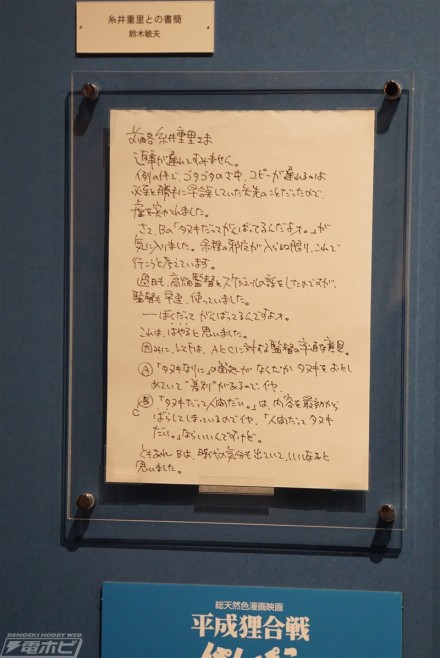 糸井重里との書簡
鈴木敏夫
前略 糸井重里さま
返事が遅れてすみません。
例の件で、ゴタゴタのさ中、コピーが遅れるのは
必至と勝手に早誤していた矢先のことだったので、
虚を突かれました。
さて、Bの「タヌキだってがんばってるんだよォ。」が
気に入りました。余程の邪魔が入らぬ限り、これで
行こうと考えています。
過日も、高畑監督とスケジュールの話をしたのですが、
監督も早速、使っていました。
──ぼくだって がんばってるんですよォ。
これは、はやると思いました。
因みに、しては、AとCに対する監督の率直な意見。
Ⓐ 「タヌキなりに」の も なんだか タヌキを おとし
めていて“差別”があるのでイヤ。
Ⓑ 「タヌキだって人間だい。」は、内容を最初から
C ばらしてしまっているのでイヤ、「人間だって タヌキ
だい。」ならいいんですけど。
ともあれ Bは、時代の気分も出ていて、いいなあと
思いました。
総天然色漫画映画
平成狸合戦
ぽんぽこ
DENGEKI HOBBY WEB
電ホビ